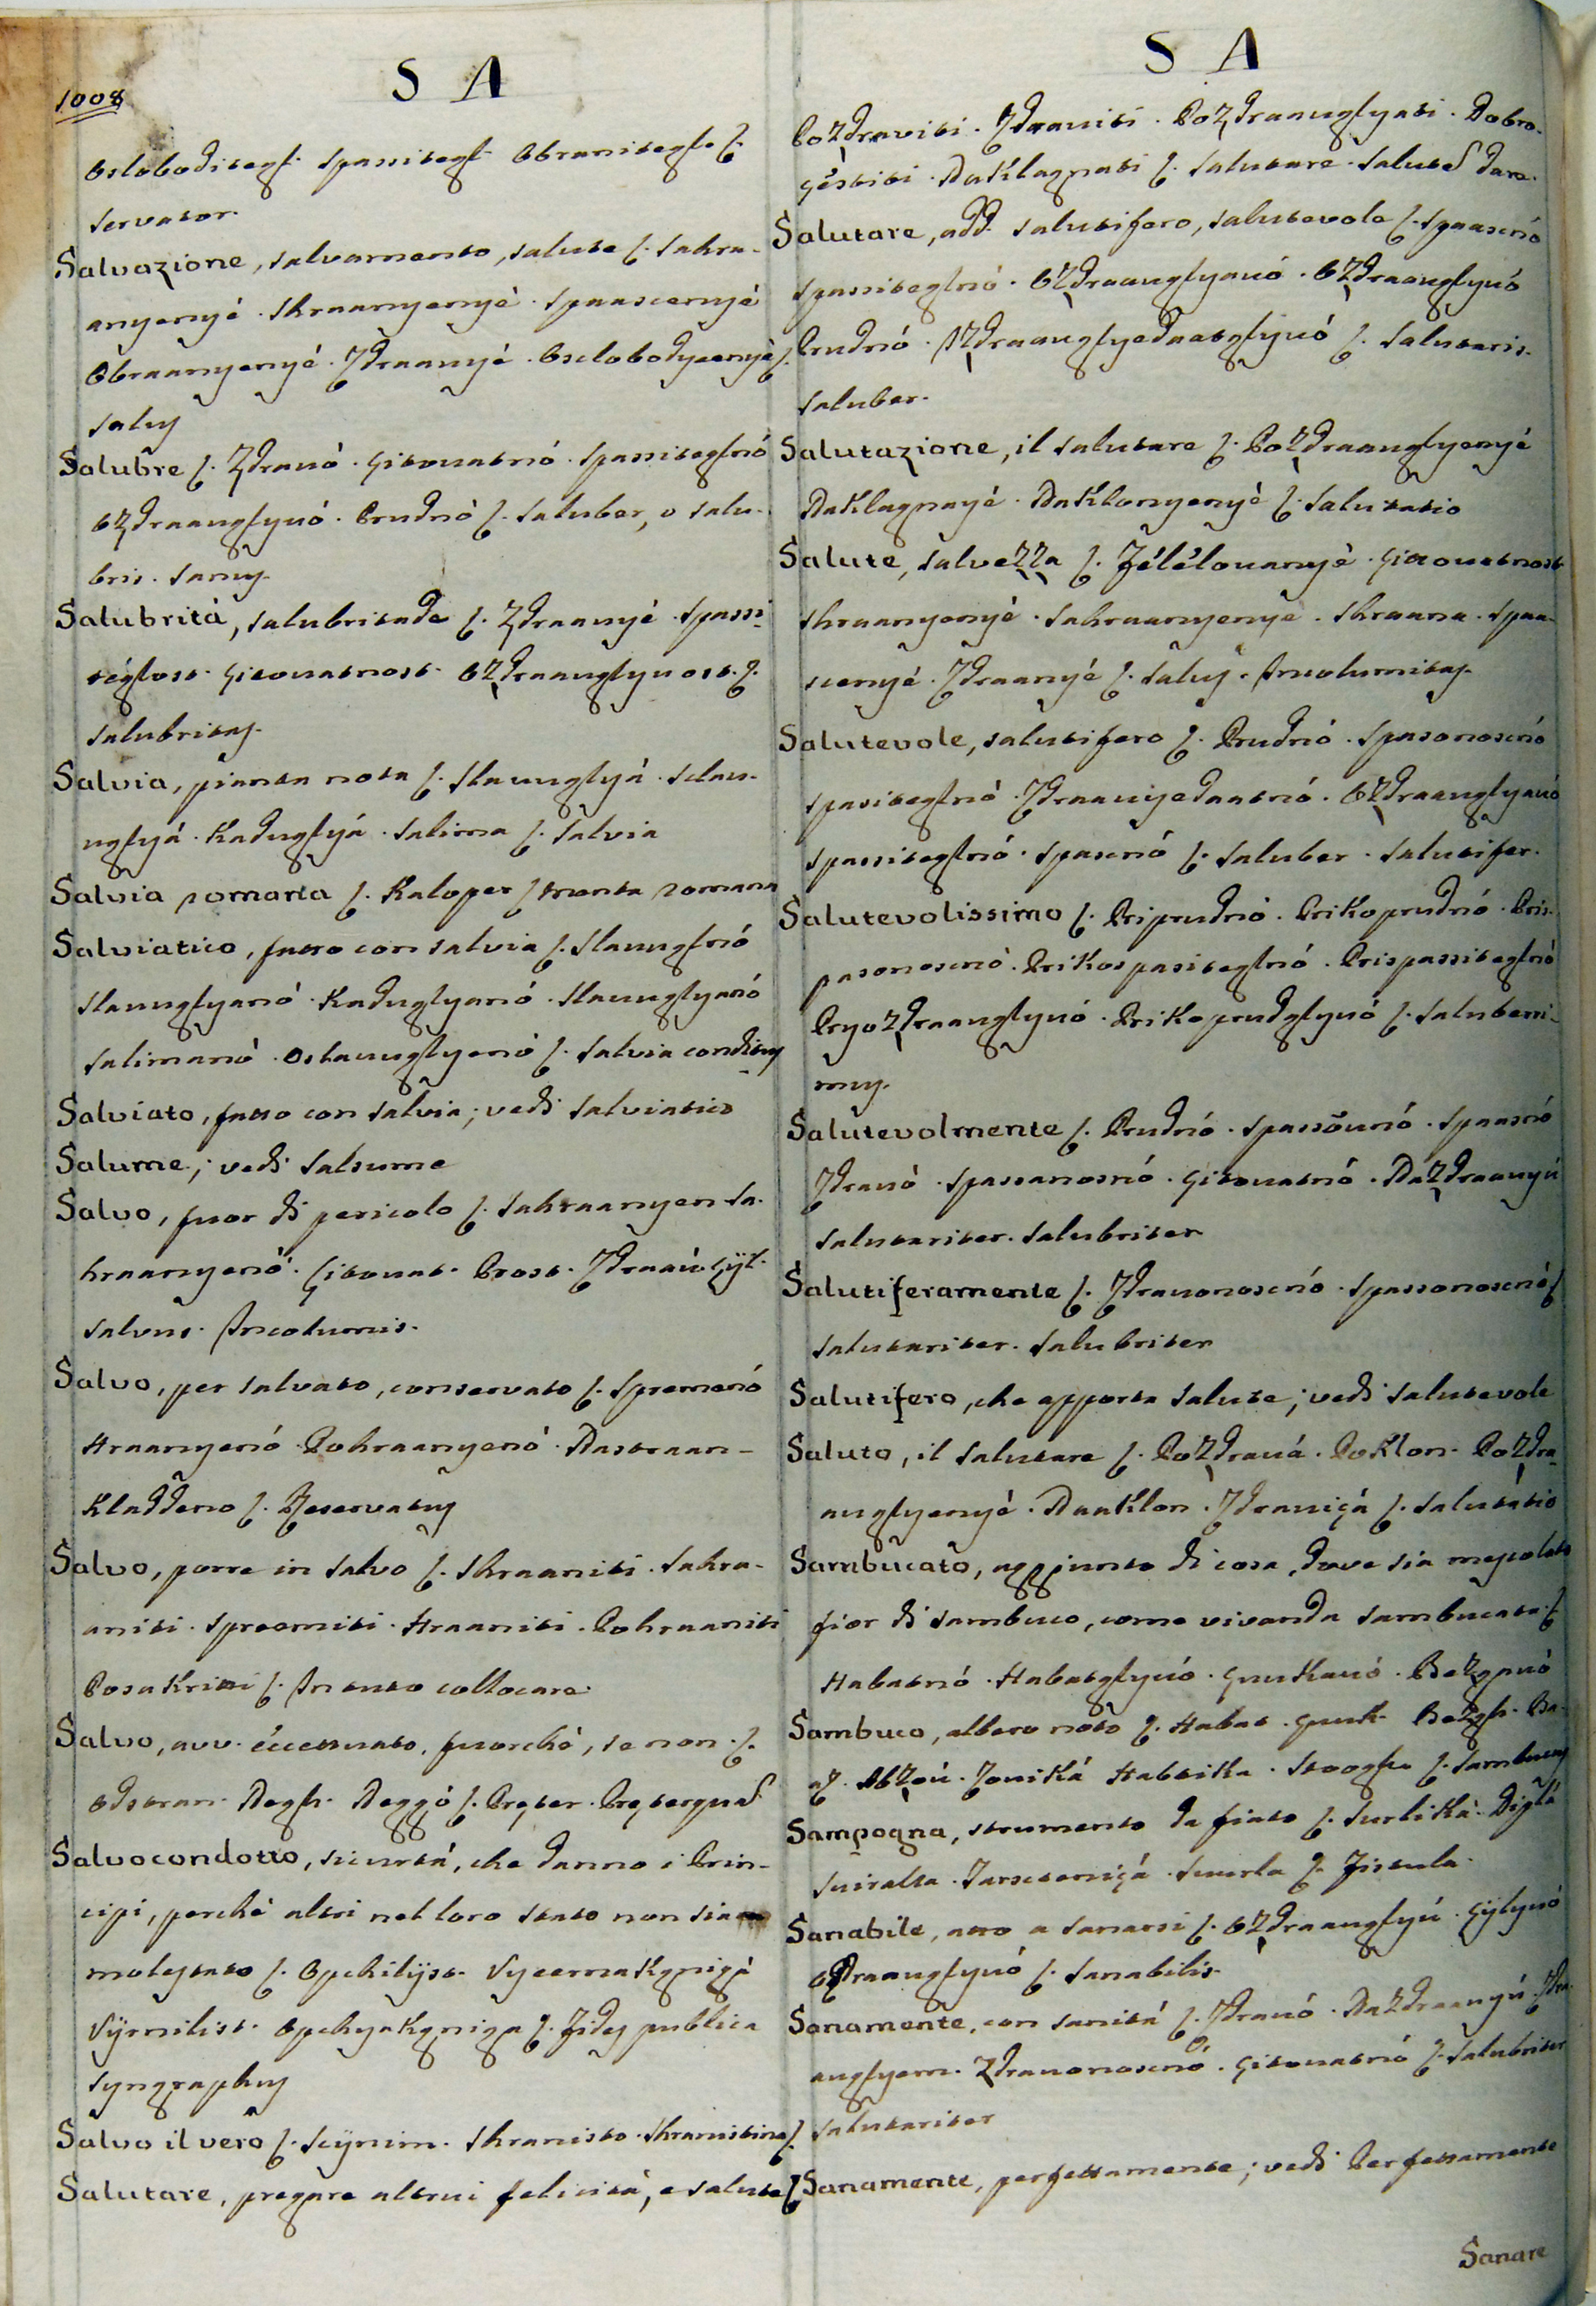 1008
S A
Osloboditegl. Spassitegl. Obranitegle ſ.
Servator.
Salvazione, salvamento, salute ſ. Sahra-
anyenyé. Shraanyenyé. Spaascenyé
Obraanyenyé. Zdraavyé. Oslobodyeenyé ſ.
Salus
Salubre ſ. Zdravó. Gitovatnó. Spassiteglnó
Ozdraavglyvó. Prudnó ſ. Saluber, o salu-
bris. Sanus.
Salubrità, salubritade ſ. Zdraavyé. Spassi-
téglost. Gitovatnost. Ozdraavglyvost. ſ.
Salubritas.
Salvia, pianta nota ſ. Slavuglyá. Sclav-
uglyá. Kaduglyá. Salima ſ. Salvia
Salvia romana ſ. Kaloper ſ menta romana
Salviatico, fatto con salvia ſ. Slavuglnó
Slavuglyanó. Kaduglyanó. Slavuglyanó
Salimanó. Oslavuglyenó ſ. Salvia conditus
Salviato, fatto con salvia; vedi Salviatico
Salume; vedi Salsume
Salvo, fuor di pericolo ſ. Sahraanyen Sa-
hraanyenó. Gitovat. Prost. Zdraav. Gyl.
Salvus. Incolumis.
Salvo, per salvato, conservato ſ. Spremenó
Hraanyenó. Pohraanyenó. Nastraan-
Kladdeno ſ. Reservatus
Salvo, porre in salvo ſ. Shraaniti. Sahra-
aniti. Spreemiti. Hraaniti. Pohraaniti
Posakritti ſ. In tuto collocare.
Salvo, avv. éccettuato, fuorché, se non. ſ.
Odstran. Negh. Neggó ſ. Pręter. Pręterquad
Salvocondotto, sicurtá, che danno i Prin-
cipi, perché altri nel loro stato non sia
molestato ſ. Opchilijst. Vyeernakgnigá
Vijrnilist. Opchyakgniga ſ. Fides publica
Syngraphus
Salvo il vero ſ. Scijnim. Shranisto. Shranistina ſ.
Salutare, pregare altrui felicitá, e salute ſ
S A
Pozdraviti. Zdraviti. Pozdraavglyati. Dobro-
géstiti. Naklagnati ſ. Salutare. Saluted dare.
Salutare, add. salutifero, salutevole ſ. Spaascnó
Spassiteglnó. Ozdraavglyavó. Ozdraavglyvó
Prudnó. Nzdraavglyedaatglyvó ſ. Salutaris.
Saluber.
Salutazione, il salutare ſ. Pozdraavglyenyé
Naklagnayé. Naklonyenyé ſ. Salutatio
Salute, salvezza ſ. Zélélovanyé. Gitovatnost
Shraanyenyé. Sahraanyenye. Shraana. Spaa-
scenyé. Zdraavyé ſ. Salus. Incolumitas.
Salutevole, salutifero ſ. Prudnó. Spasonoscnó
Spasiteglnó. Zdraavyedaatnó. Ozdraavglyavó
Spassiteglnó. Spascnó ſ. Saluber. Salutifer.
Salutevolissimo ſ. Priprudnó. Prikoprudnó. Pris-
pasonoscnó. Prikospasiteglnó. Prispassiteglnó
Pryozdraavglyvó. Prikoprudglyvó ſ. Saluberri-
mus.
Salutevolmente ſ. Prudnó. Spassōvnó. Spaasnó
Zdravó. Spassanosnó. Gitovatnó. Nazdraavyú
Salutariter. Salubriter
Salutiferamente ſ. Zdravonoscnó. Spassonoscnó ſ
Salutariter. Salubriter
Salutifero, che apporta salute; vedi Salutevole
Saluto, il salutare ſ. Pozdravá. Poklon. Pozdra-
avglyenyé. Naaklon. Zdravigá ſ. Salutátio
Sambucato, aggiunto di cosa, dove sia mescolato
fior di sambuco, come vivanda sambucata ſ
Habatnó. Habatglyvó. Gvukavó. Bazgnuó
Sambuco, albero noto ſ. Habat. Gvuk. Bazgh. Ba-
az. Abzov. Zoviká Habtika. Stoogha ſ. Sambucus
Sampogna, strumento da fiato ſ. Surlika. Diplá
Sviralla. Tarsctenigá. Svurla ſ. Fistula.
Sanabile, atto a sanarsi ſ. Ozdraavglyú. Gijlyvó
Ozdraavglyvó ſ. Sanabilis.
Sanamente, con sanitá ſ. Zdravó. Nazdraavyú. Zdra-
avglyem. Zdravonoscnó. Gitovatnó ſ. Salubriter
Salutariter
Sanamente, perfettamente; vedi Perfettamente
Sanare